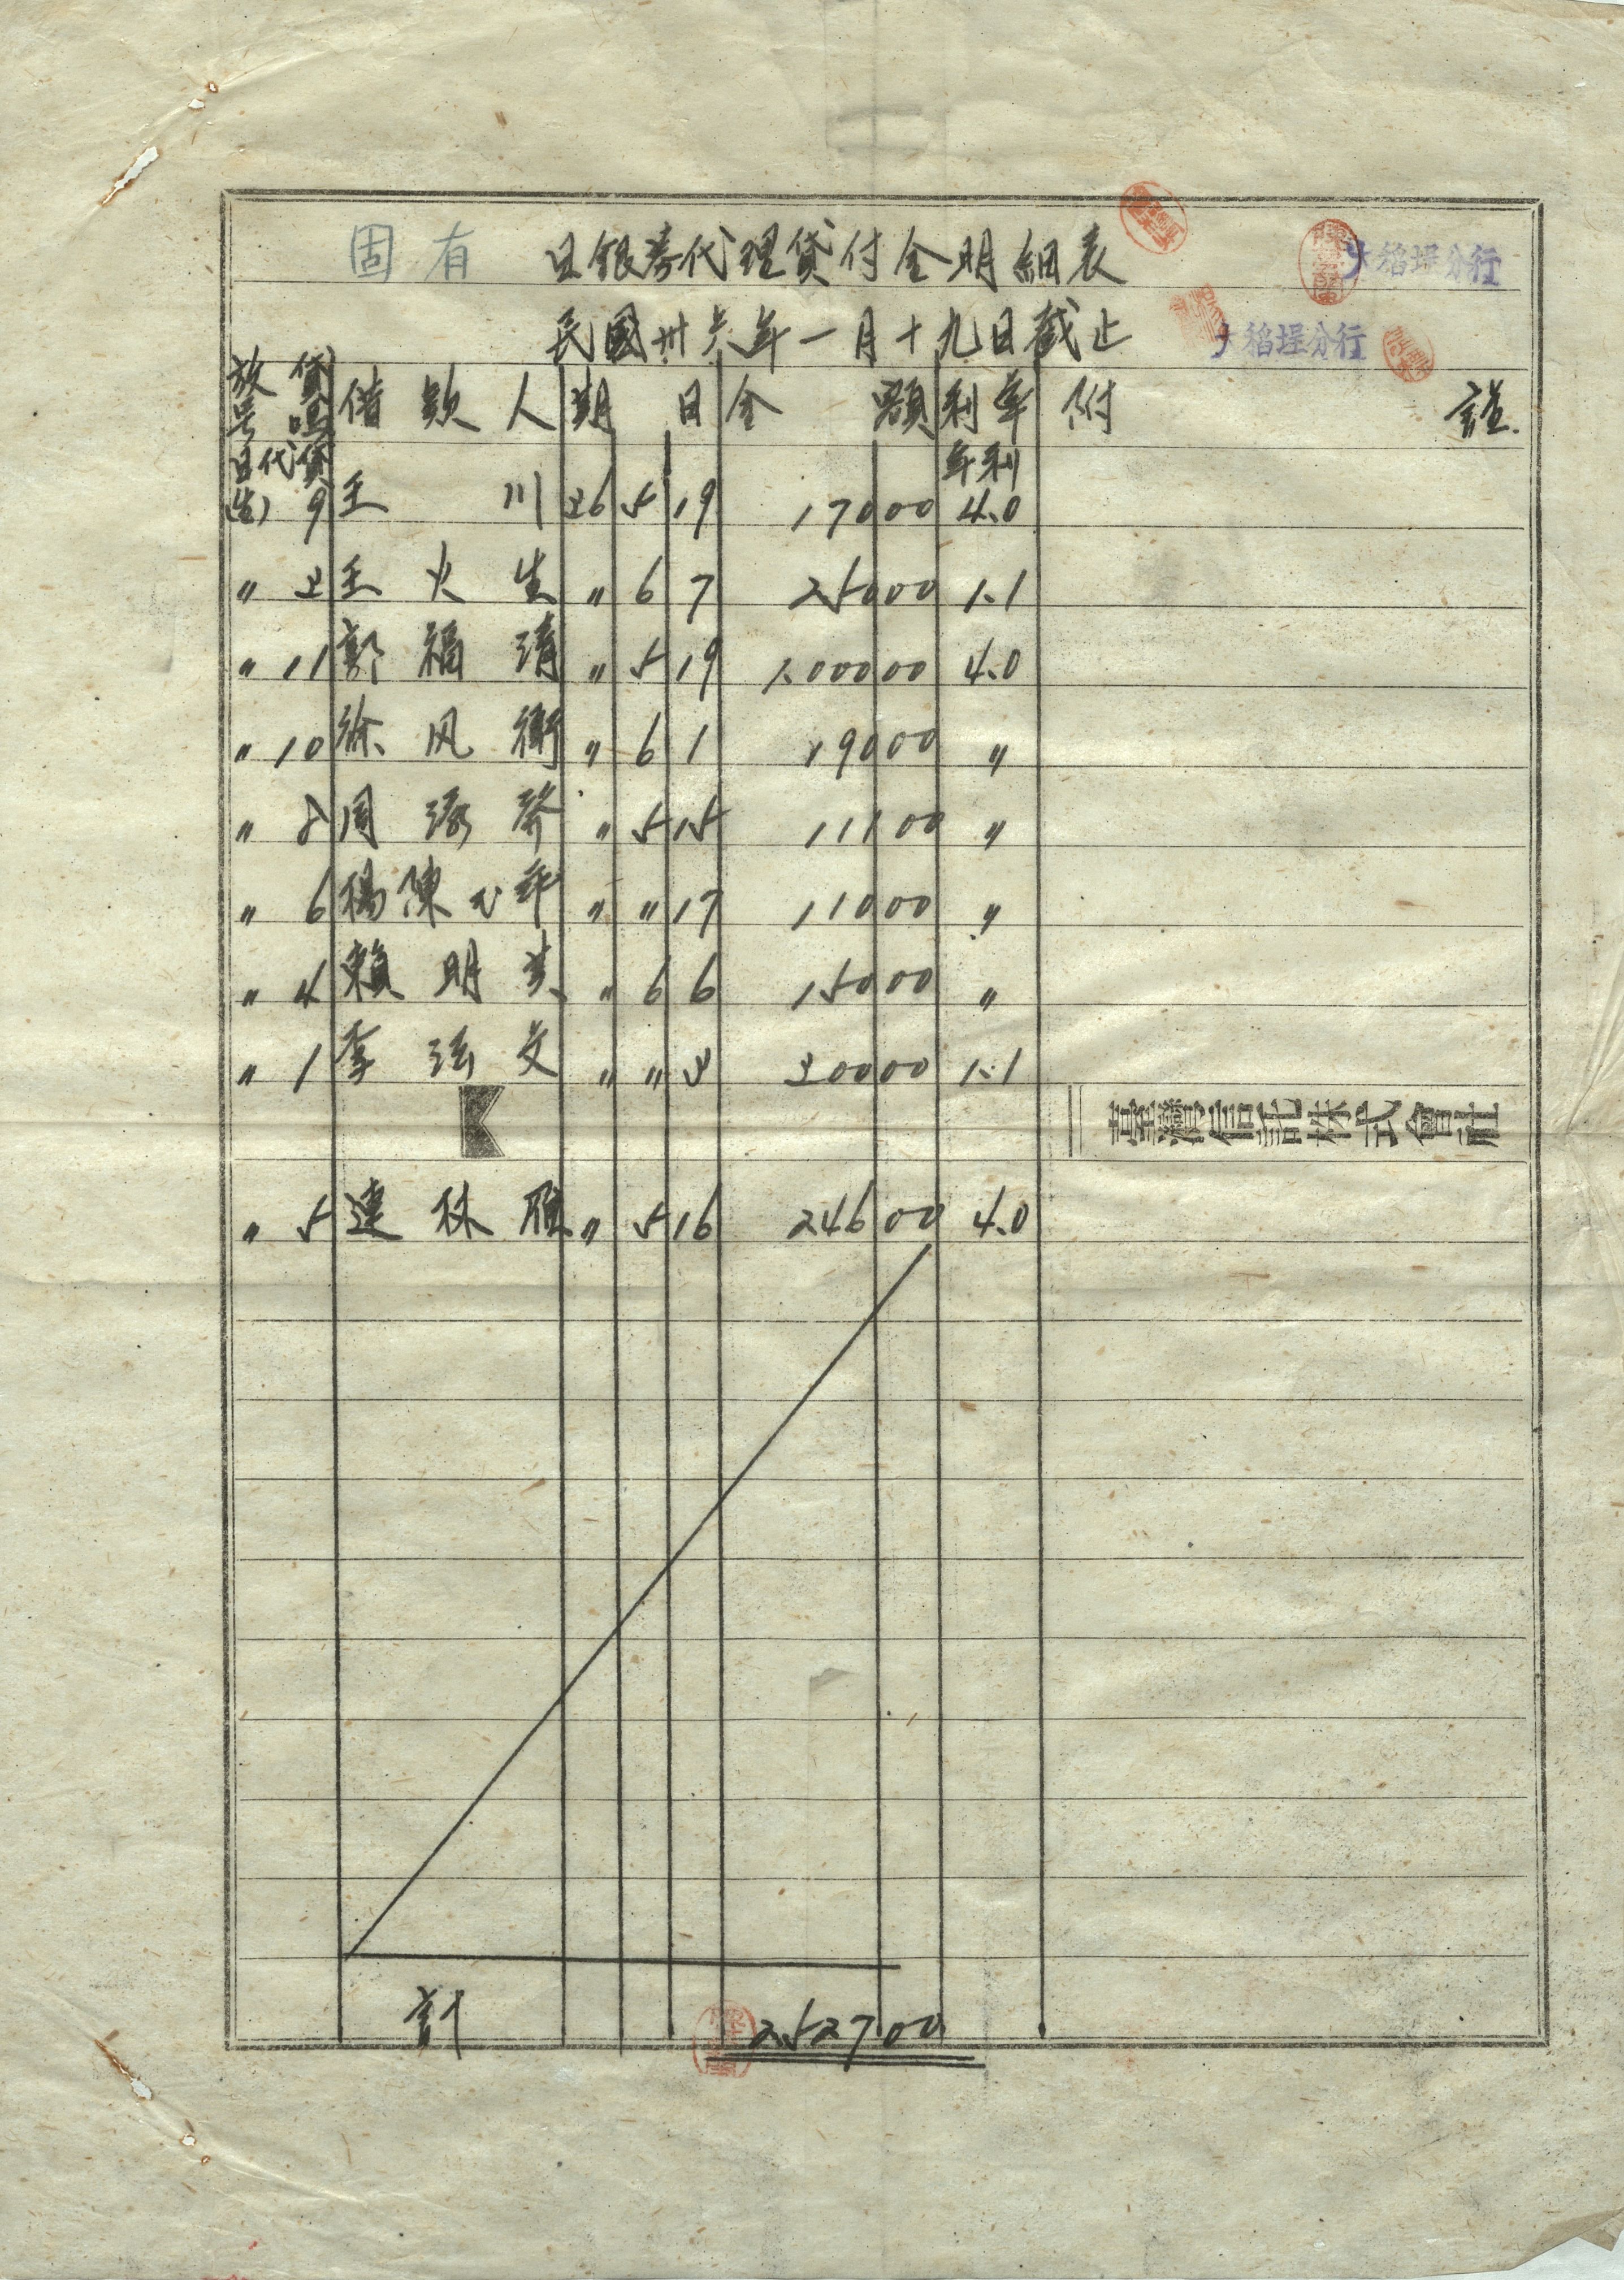 固有 日銀券代理貸付金明細表 大稻埕分行
民國卅六年一月十九日截止 大稻埕分行
放貸 借款人 期日 金額 利率 附註
号 年利
日代貸
9 王川 36 5 19 17000 4.0
〃 3 王火生 〃 6 7 25000 1.1
〃 11 郭福清 〃 5 19 100000 4.0
〃 10 徐风衡 〃 6 1 19000 〃
〃 8 周 〃 5 15 11100 〃
〃 6 楊陳 〃 〃 17 11000 〃
〃 4 賴明 〃 6 6 15000 〃
〃 1 李 文 〃 〃 3 30000 1.1
臺灣信託株式會社
〃 5 連林雁 〃 5 16 24600 4.0
計 252700